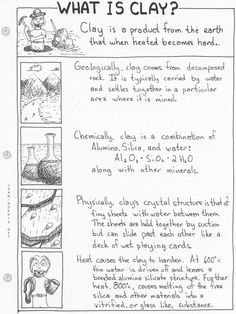 WHAT IS CLAY?
Clay is a product from the earth
that when heated becomes hard.
Geologically, clay comes from decomposed
rock. It is typically carried by water
and settles together in a particular
area where it is mined.
Chemically, clay is a combination of
Alumina, Silica, and water:
Al₂O₃ · SiO₂ · 2H₂O
along with other minerals.
Physically, clay's crystal structure is that of
tiny sheets with water between them.
The sheets are held together by suction
but can slide past each other like a
deck of wet playing cards.
Heat causes the clay to harden. At 600°
the water is driven off and leaves a
bonded alumina silicate structure. Further
heat, 800°, causes melting of the free
silica and other materials into a
vitrified, or glass like, substance.